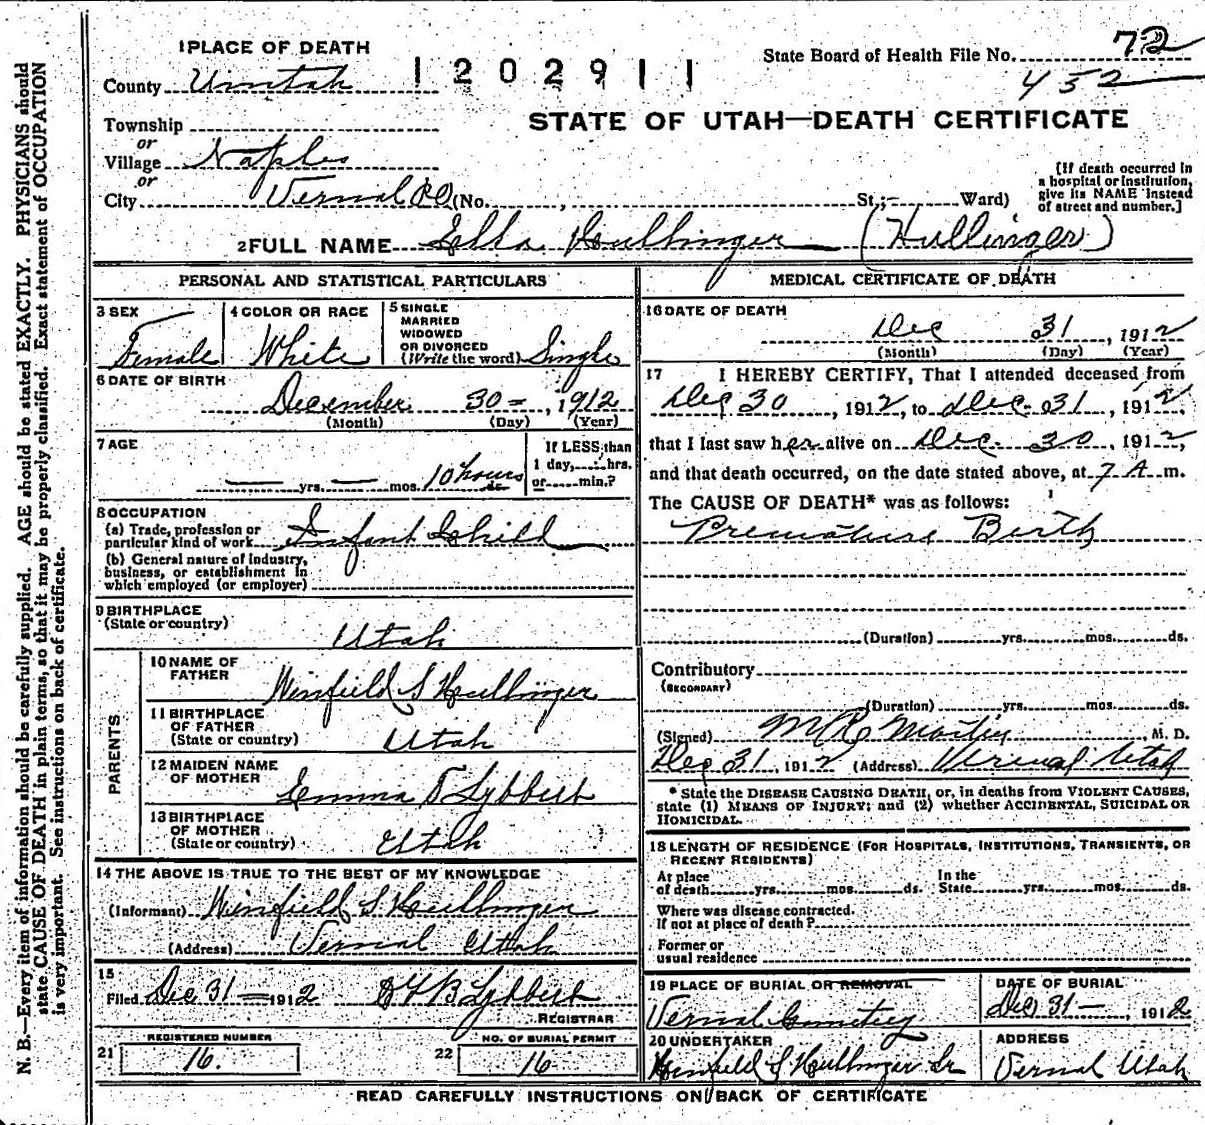 1 PLACE OF DEATH
County Uintah
1 2 0 2 9 1 1
State Board of Health File No. 72
452
Township
or
Village Naples
or
City Vernal RD (No. , St.; Ward)
STATE OF UTAH—DEATH CERTIFICATE
[If death occurred in
a hospital or institution,
give its NAME instead
of street and number.]
2 FULL NAME Ella Hullinger (Hullinger)
PERSONAL AND STATISTICAL PARTICULARS
3 SEX
Female
4 COLOR OR RACE
White
5 SINGLE
MARRIED
WIDOWED
OR DIVORCED
(Write the word) Single
6 DATE OF BIRTH
December 30 , 1912
(Month) (Day) (Year)
7 AGE
yrs. mos. 10 hours ds.
If LESS than
1 day, hrs.
or min.?
8 OCCUPATION
(a) Trade, profession or
particular kind of work Infant Child
(b) General nature of industry,
business, or establishment in
which employed (or employer)
9 BIRTHPLACE
(State or country)
Utah
PARENTS
10 NAME OF
FATHER
Winfield S Hullinger
11 BIRTHPLACE
OF FATHER
(State or country) Utah
12 MAIDEN NAME
OF MOTHER
Emma T Lybbert
13 BIRTHPLACE
OF MOTHER
(State or country) Utah
14 THE ABOVE IS TRUE TO THE BEST OF MY KNOWLEDGE
(Informant) Winfield S Hullinger
(Address) Vernal Utah
15
Filed Dec 31 1912 Lybbert
REGISTRAR
21 REGISTERED NUMBER
16.
22 NO. OF BURIAL PERMIT
16
MEDICAL CERTIFICATE OF DEATH
16 DATE OF DEATH
Dec 31 , 1912
(Month) (Day) (Year)
17 I HEREBY CERTIFY, That I attended deceased from
Dec 30 , 1912, to Dec. 31 , 1912,
that I last saw her alive on Dec. 30 , 1912,
and that death occurred, on the date stated above, at 7 A. m.
The CAUSE OF DEATH* was as follows:
Premature Birth
(Duration) yrs. mos. ds.
Contributory
(SECONDARY)
(Duration) yrs. mos. ds.
(Signed) M.D.
Dec 31 , 1912 (Address) Vernal Utah
* State the DISEASE CAUSING DEATH, or, in deaths from VIOLENT CAUSES,
state (1) MEANS OF INJURY; and (2) whether ACCIDENTAL, SUICIDAL OR
HOMICIDAL.
18 LENGTH OF RESIDENCE (FOR HOSPITALS, INSTITUTIONS, TRANSIENTS, OR
RECENT RESIDENTS)
At place
of death yrs. mos. ds.
In the
State yrs. mos. ds.
Where was disease contracted.
If not at place of death?
Former or
usual residence
19 PLACE OF BURIAL OR REMOVAL
Vernal Cemetery
DATE OF BURIAL
Dec 31 , 1912
20 UNDERTAKER
Winfield S Hullinger Sr
ADDRESS
Vernal Utah
READ CAREFULLY INSTRUCTIONS ON BACK OF CERTIFICATE
N. B.—Every item of information should be carefully supplied. AGE should be stated EXACTLY. PHYSICIANS should
state CAUSE OF DEATH in plain terms, so that it may be properly classified. Exact statement of OCCUPATION
is very important. See instructions on back of certificate.